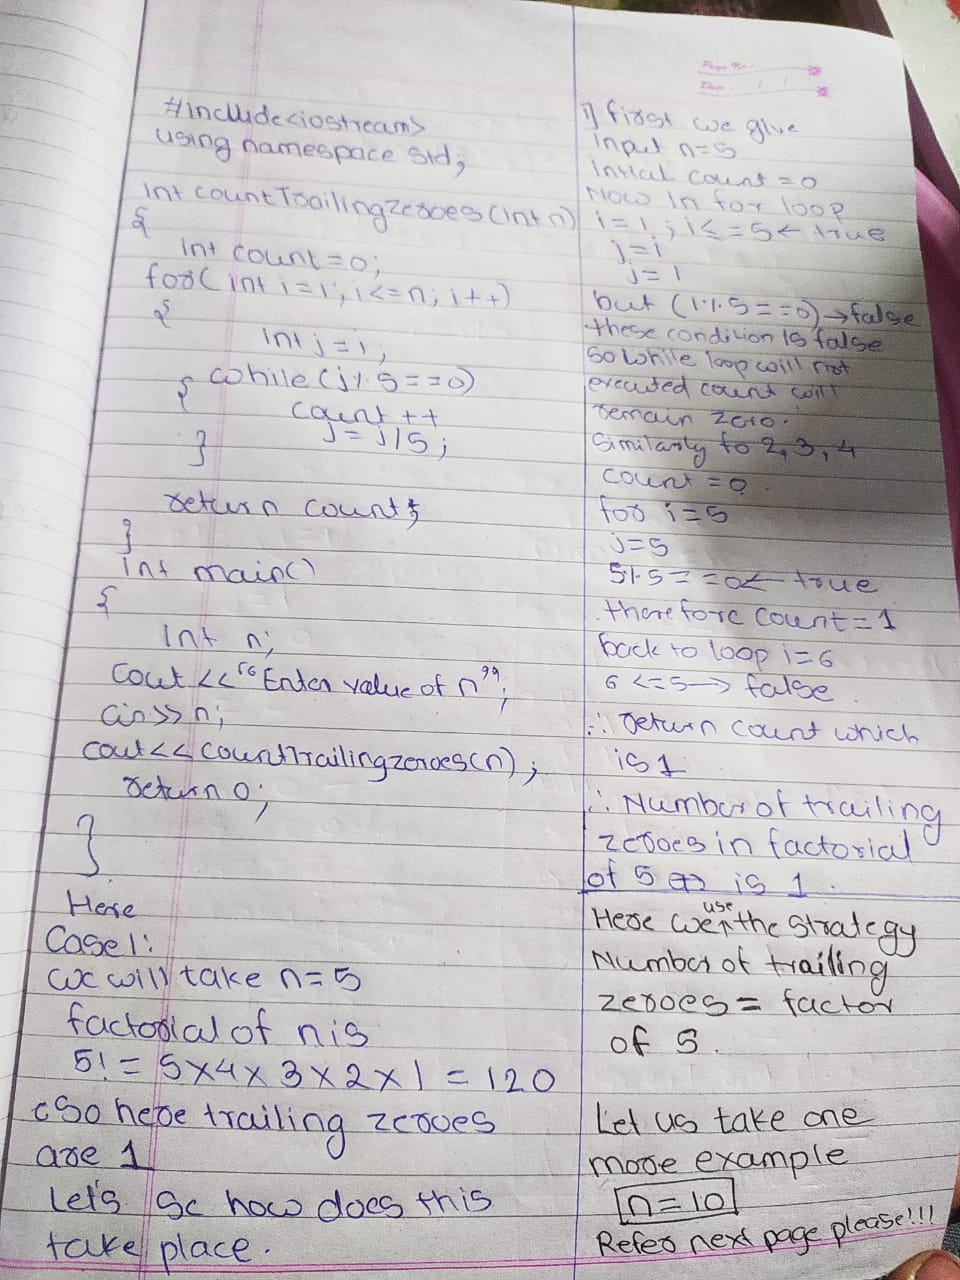 #include<iostream>
using namespace std;
int countTrailingzeroes(int n)
{
int count=0;
for(int i=1; i<=n; i++)
{
int j=i;
while(j%5==0)
{
count++
j=j/5;
}
return count;
}
int main()
{
int n;
cout<<"Enter value of n";
cin>>n;
cout<<countTrailingzeroes(n);
return 0;
}
Here
Case1:
we will take n=5
factorial of n is
5! = 5x4x3x2x1 = 120
So here trailing zeroes
are 1
Let's Se how does this
take place.
Page No.
Date: / /
1) first we give
input n=5
Intial count=0
Now in for loop
i=1; i<=5 ← true
j=i
j=1
but (1%5==0)→false
these condition is false
so while loop will not
executed count will
remain zero.
Similarly fo 2,3,4
count=0.
for i=5
j=5
5%5==0← true
therefore count=1
back to loop i=6
6<=5→ false
∴ return count which
is 1
∴ Number of trailing
zeroes in factorial
of 5 is 1.
Here we use the strategy
Number of trailing
zeroes = factor
of 5.
Let us take one
more example
n=10
Refer next page please!!!